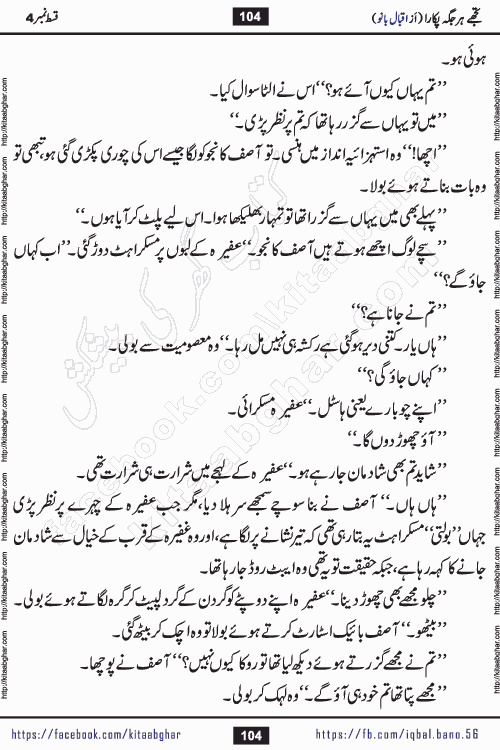 تجھے ہر جگہ پکارا (از اقبال بانو)
104
قسط نمبر 4
ہوئی ہو۔
’’تم یہاں کیوں آئے ہو؟‘‘ اس نے الٹا سوال کیا۔
’’میں تو یہاں سے گزر رہا تھا کہ تم پر نظر پڑی۔‘‘
’’اچھا!‘‘ وہ استہزائیہ انداز میں ہنسی۔ تو آصف کانجو کو لگا جیسے اس کی چوری پکڑی گئی ہو، تبھی تو
وہ بات بناتے ہوئے بولا۔
’’پہلے بھی میں یہاں سے گزرا تھا تو تمہارا بھی لکھا ہوا۔ اس لیے پلٹ کر آیا ہوں۔‘‘
’’سچے لوگ اچھے ہوتے ہیں آصف کانجو۔‘‘ عفیرہ کے لبوں پر مسکراہٹ دوڑ گئی۔ ’’اب کہاں
جاؤ گے؟‘‘
’’تم نے جانا ہے؟‘‘
’’ہاں یار۔ کتنی دیر ہو گئی ہے رکشہ ہی نہیں مل رہا۔‘‘ وہ معصومیت سے بولی۔
’’کہاں جاؤ گی؟‘‘
’’اپنے چوبارے یعنی ہاسٹل۔‘‘ عفیرہ مسکرائی۔
’’آؤ چھوڑ دوں گا۔‘‘
’’شاید تم بھی شادمان جا رہے ہو۔‘‘ عفیرہ کے لہجے میں شرارت ہی شرارت تھی۔
’’ہاں ہاں۔‘‘ آصف نے بنا سوچے سمجھے سر ہلا دیا، مگر جب عفیرہ کے چہرے پر نظر پڑی
جہاں ’’بولتی‘‘ مسکراہٹ یہ بتا رہی تھی کہ تیر نشانے پر لگا ہے، اور وہ عفیرہ کے قرب کے خیال سے شادمان
جانے کا کہہ رہا ہے، جبکہ حقیقت تو یہ تھی وہ ایبٹ روڈ جا رہا تھا۔
’’چلو مجھے بھی چھوڑ دینا۔‘‘ عفیرہ اپنے دوپٹے کو گردن کے گرد لپیٹ کر گرہ لگاتے ہوئے بولی۔
’’بیٹھو۔‘‘ آصف بائیک اسٹارٹ کرتے ہوئے بولا تو وہ اچک کر بیٹھ گئی۔
’’تم نے مجھے گزرتے ہوئے دیکھ لیا تھا تو روکا کیوں نہیں؟‘‘ آصف نے پوچھا۔
’’مجھے پتا تھا تم خود ہی آؤ گے۔‘‘ وہ لہک کر بولی۔
کتاب گھر کی پیشکش
facebook.com/kitaabghar
kitaabghar.com
http://kitaabghar.com
https://facebook.com/kitaabghar
104
https://fb.com/iqbal.bano.56